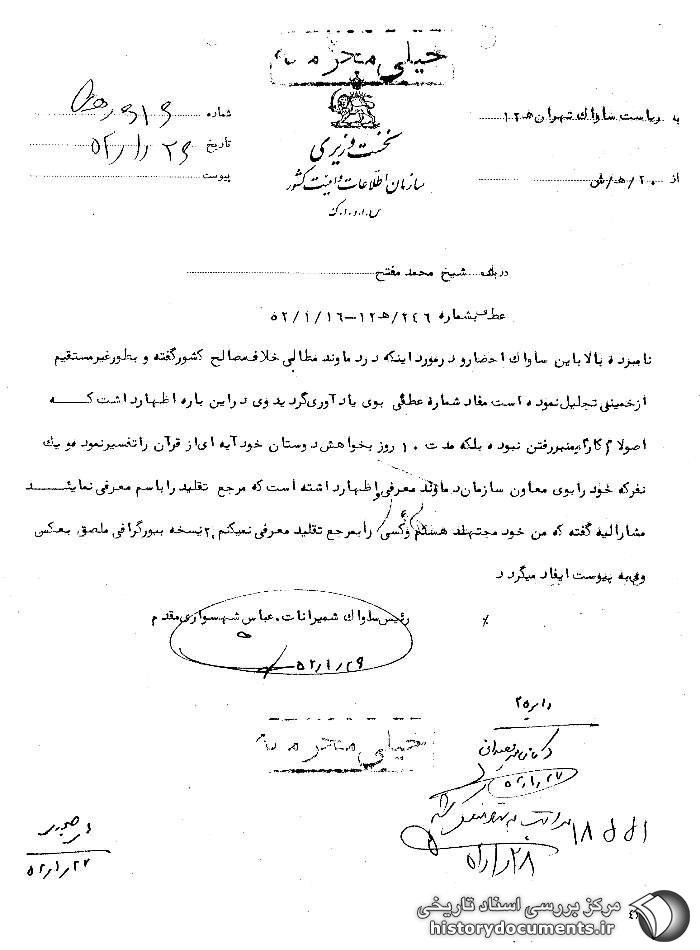 خیلی محرمانه
به ریاست ساواک تهران ه‍ ۱۲
از ۲۰/ه‍/ش
نخست وزیری
سازمان اطلاعات و امنیت کشور
س.ا.و.ا.ک
شماره
تاریخ
پیوست
درباره شیخ محمد مفتح
عطف بشماره ۲۴۶/ه‍ ۱۲-۵۲/۱/۱۶
نامبرده بالا باین ساواک احضار و در مورد اینکه در دماوند مطالبی خلاف مصالح کشور گفته و بطور غیر مستقیم
از خمینی تجلیل نموده است مفاد شماره عطفی بوی یادآوری گردید وی در این باره اظهار داشت که
اصولا کارم منبر رفتن نبوده بلکه مدت ۱۰ روز بخواهش دوستان خود آیه ای از قرآن را تفسیر نموده و یک
نفر که خود را بوی معاون سازمان دماوند معرفی و اظهار داشته است که مرجع تقلید را باسم معرفی نمایند
مشارالیه گفته که من خود مجتهد هستم و کسی را بمرجع تقلید معرفی نمیکنم ۲ نسخه بیوگرافی ملصق بعکس
وی به پیوست ایفاد میگردد
رئیس ساواک شمیرانات. عباس شهسواری مقدم
۵۲/۱/۲۶
خیلی محرمانه
۵۲/۱/۲۷
۵۲/۱/۲۷
مرکز بررسی اسناد تاریخی
historydocuments.ir